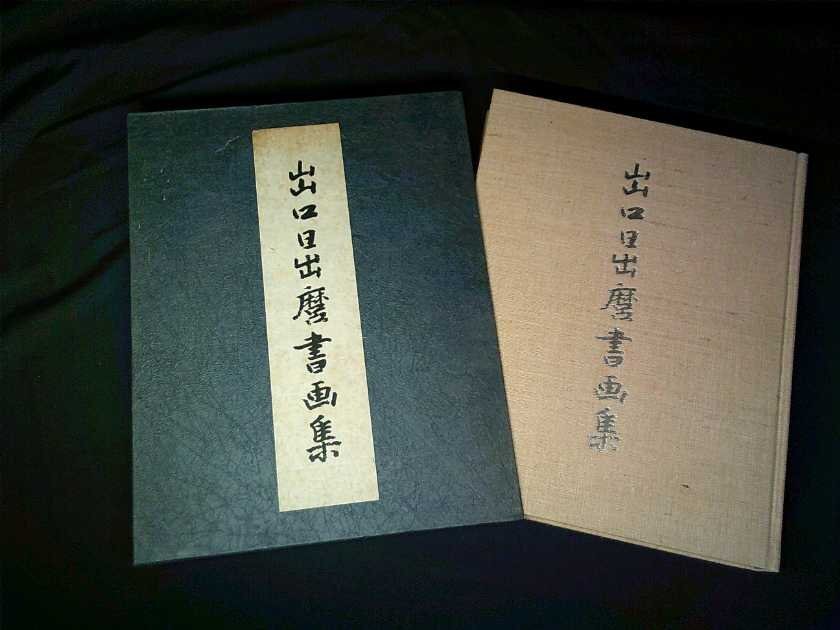 出口日出麿書画集
出口日出麿書画集